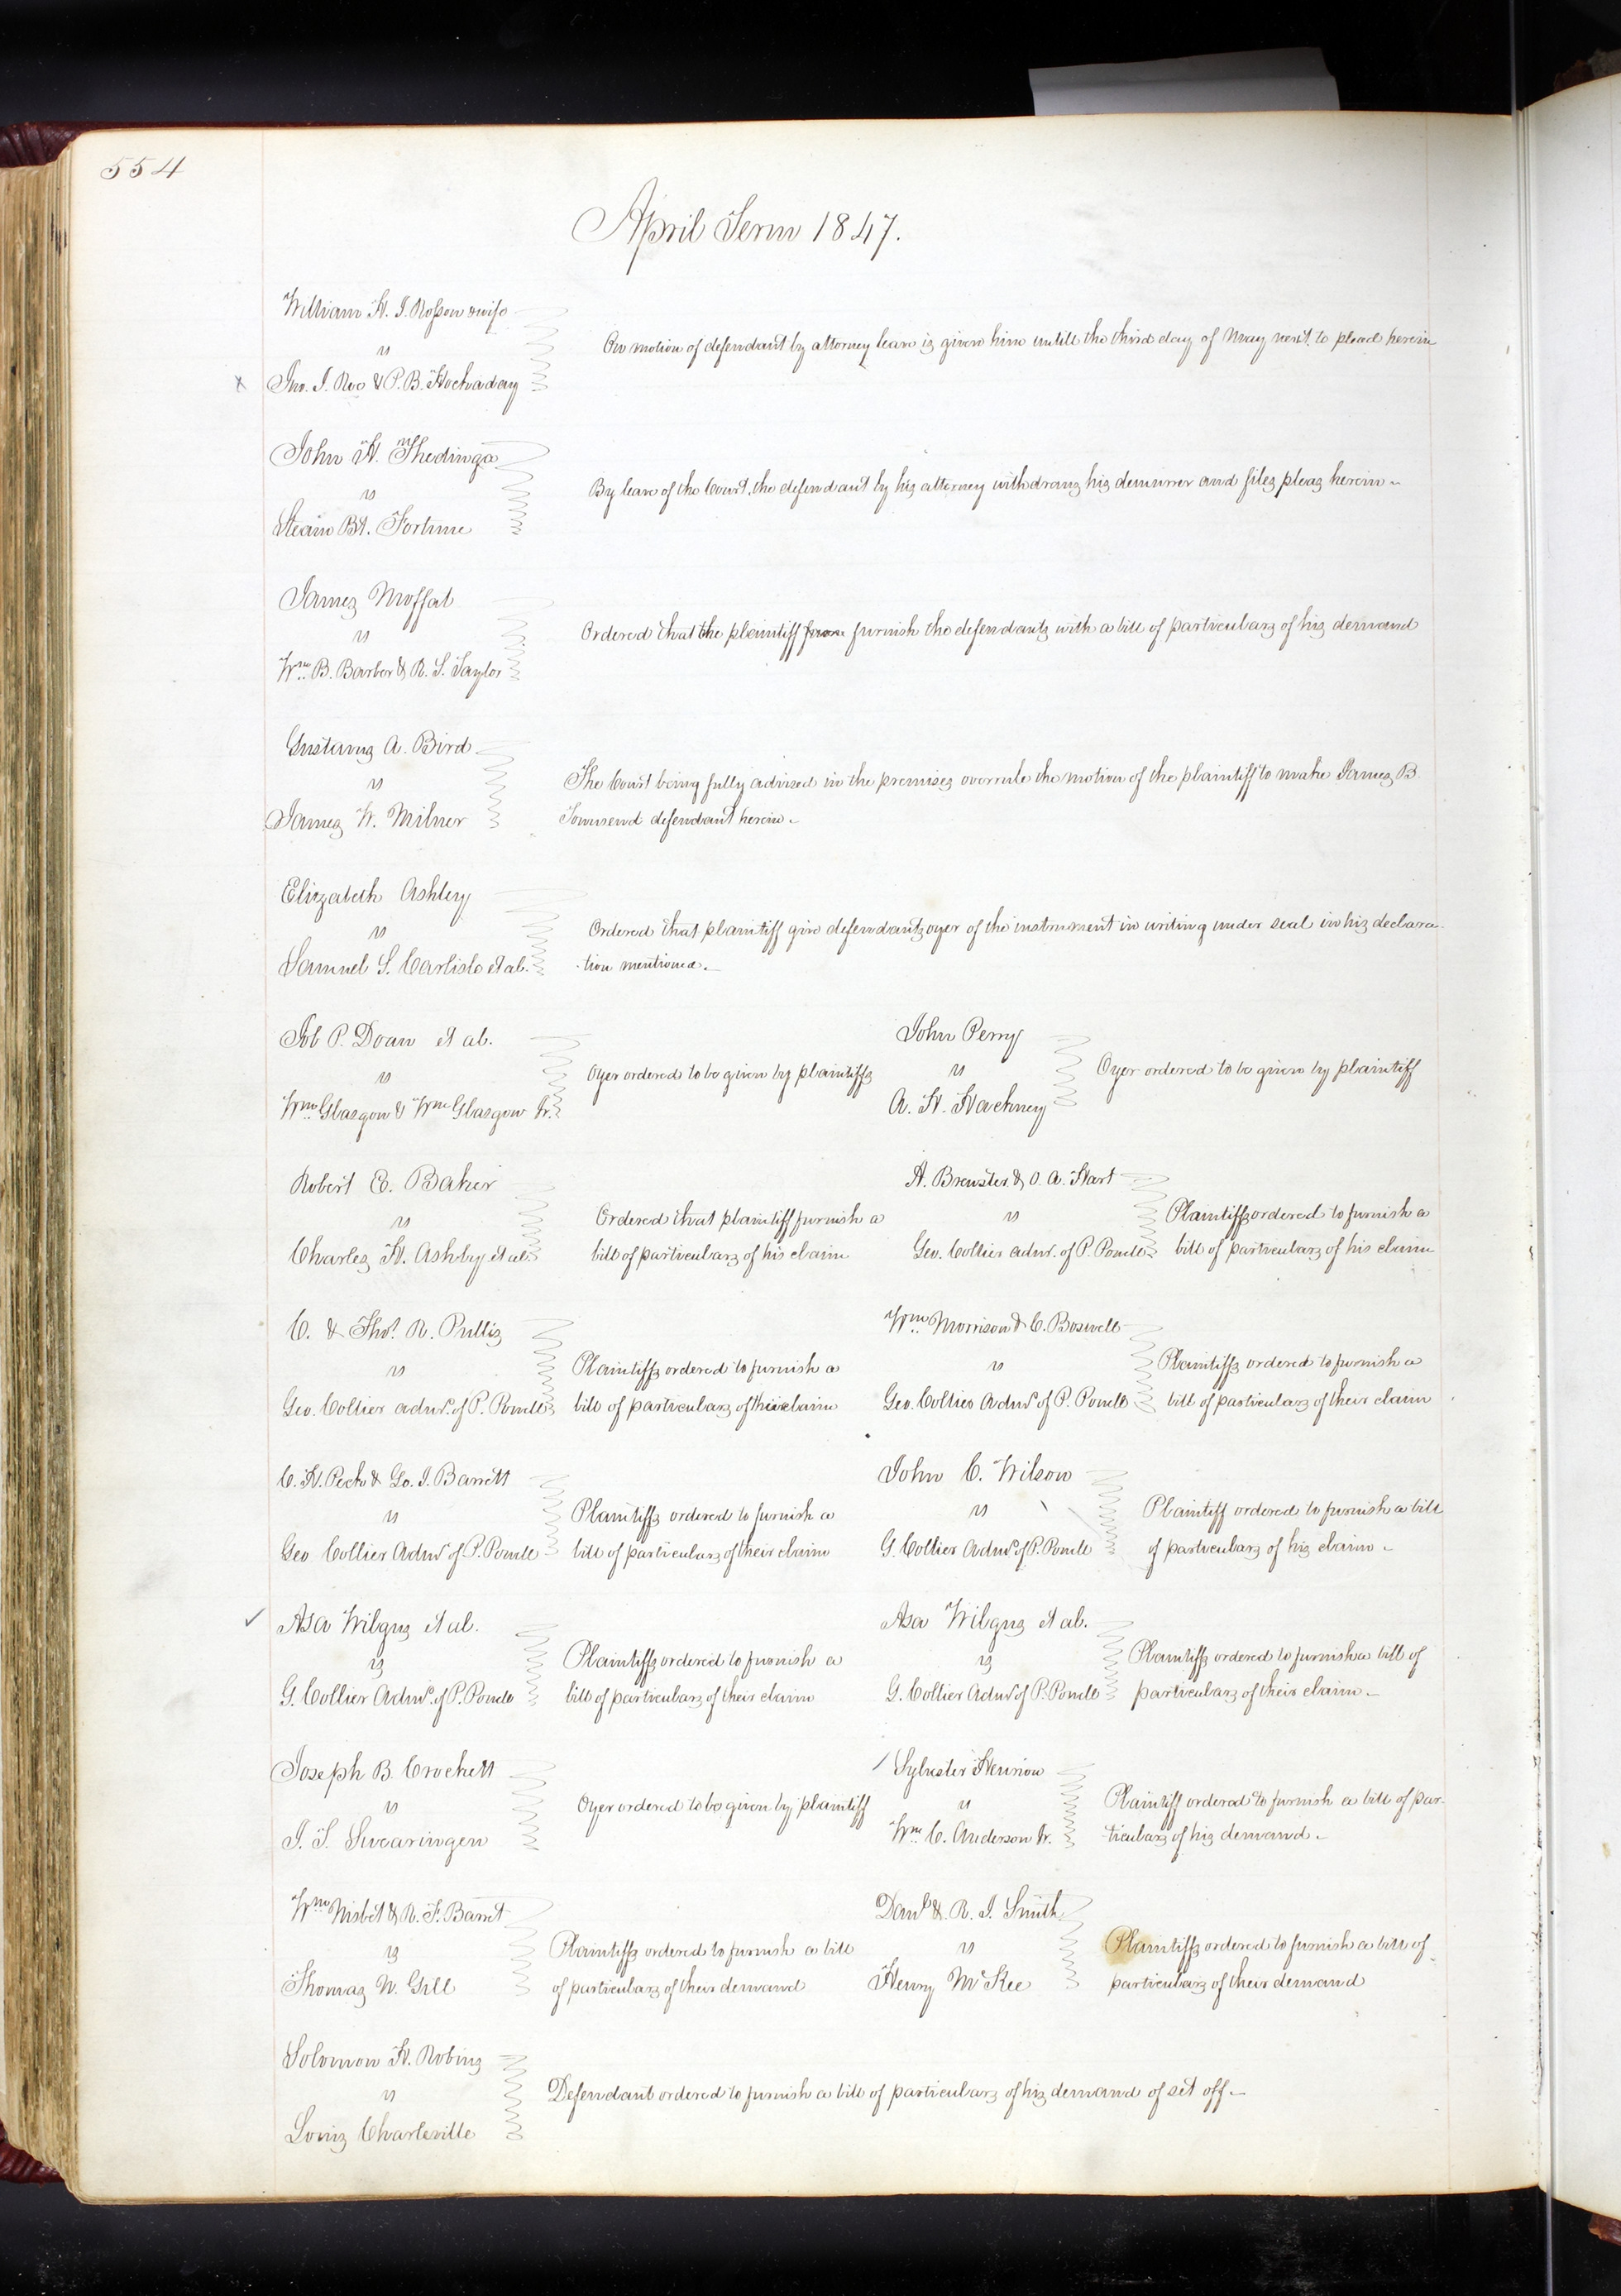 554
April Term 1847.
William H. J. Rosson & wife
vs
Jno. J. Roe & P. B. Hockaday
On motion of defendant by attorney leave is given him untill the third day of May next, to plead herein
John H. Thedinga
vs
Steam Bt. Fortune
By leave of the Court, the defendant by his attorney withdraws his demurrer and files pleas herein
James Moffat
vs
Wm. B. Barber & R. S. Taylor
Ordered that the plaintiff furnish the defendants with a bill of particulars of his demand
Gustavus A. Bird
vs
James W. Milner
The Court being fully advised in the premises overrule the motion of the plaintiff to make James B.
Townsend defendant herein.
Elizabeth Ashley
vs
Samuel S. Carlisle et al.
Ordered that plaintiff give defendants oyer of the instrument in writing under seal in his declara-
tion mentioned.
Job P. Doan et al.
vs
Wm. Glasgow & Wm Glasgow Jr.
Oyer ordered to be given by plaintiffs
John Perry
vs
A. H. Hackney
Oyer ordered to be given by plaintiff
Robert E. Baker
vs
Charles H. Ashby et al.
Ordered that plaintiff furnish a
bill of particulars of his claim
H. Brewster & O. A. Hart
vs
Geo. Collier admr. of P. Powell
Plaintiffs ordered to furnish a
bill of particulars of his claim
C. & Thos. R. Pullis
vs
Geo. Collier admr. of P. Powell
Plaintiffs ordered to furnish a
bill of particulars of their claim
Wm. Morrison & C. Boswell
vs
Geo. Collier Admr of P. Powell
Plaintiffs ordered to furnish a
bill of particulars of their claim
C. H. Peck & Geo. J. Barnett
vs
Geo Collier Admr of P. Powell
Plaintiffs ordered to furnish a
bill of particulars of their claim
John C. Wilson
vs
G. Collier Admr. of P. Powell
Plaintiff ordered to furnish a bill
of particulars of his claim.
Asa Wilgus et al.
vs
G. Collier Admr. of P. Powell
Plaintiffs ordered to furnish a
bill of particulars of their claim
Asa Wilgus et al.
vs
G. Collier Admr of P. Powell
Plaintiffs ordered to furnish a bill of
particulars of their claim.
Joseph B. Crockett
vs
J. T. Swearingen
Oyer ordered to be given by plaintiff
Sylvester
vs
Wm C. Anderson Jr.
Plaintiff ordered to furnish a bill of par-
ticulars of his demand.
Wm Nisbet & R. F. Barret
vs
Thomas N. Gill
Plaintiffs ordered to furnish a bill
of particulars of their demand
Danl. & R. J. Smith
vs
Henry McKee
Plaintiffs ordered to furnish a bill of
particulars of their demand
Solomon H. Robins
vs
Louis Charleville
Defendant ordered to furnish a bill of particulars of his demand of set off.